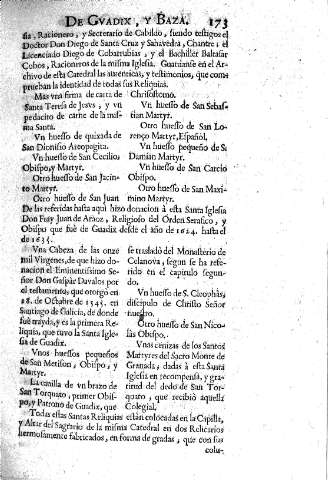 DE GVADIX, Y BAZA. 173
sia, Racionero, y Secretario de Cabildo, siendo testigos el
Doctor Don Diego de Santa Cruz y Sahavedra, Chantre; el
Licenciado Diego de Cobarrubias, y el Bachiller Baltasar
Cobos, Racioneros de la misma Iglesia. Guardanse en el Ar-
chivo de esta Catedral las autenticas, y testimonios, que com-
prueban la identidad de todas sus Reliquias.
Mas vna firma de carta de
Santa Teresa de Iesvs, y vn
pedacito de carne de la mis-
ma Santa.
Vn huesso de quixada de
San Dionisio Areopagita.
Vn huesso de San Cecilio
Obispo, y Martyr.
Otro huesso de San Jacin-
to Martyr.
Otro huesso de San Juan
Chrisostomo.
Vn huesso de San Sebas-
tian Martyr.
Otro huesso de San Lo-
renço Martyr, Español.
Vn huesso pequeño de S.
Damian Martyr.
Vn huesso de San Carcio
Obispo.
Otro huesso de San Maxi-
mino Martyr.
De las referidas hasta aqui hizo donacion à esta Santa Iglesia
Don Fray Juan de Araoz, Religioso del Orden Serafico, y
Obispo que fuè de Guadix desde el año de 1624. hasta el
de 1635.
Vna Cabeza de las onze
mil Virgenes, de que hizo do-
nacion el Eminentissimo Se-
ñor Don Gaspar Davalos por
el testamento, que otorgò en
28. de Octubre de 1545. en
Santiago de Galicia, de donde
fuè trayda, y es la primera Re-
liquia, que tuvo la Santa Igle-
sia de Guadix.
Vnos huessos pequeños
de San Metison, Obispo, y
Martyr.
La canilla de vn brazo de
San Torquato, primer Obis-
po, y Patrono de Guadix, que
se trasladò del Monasterio de
Celanova, segun se ha refe-
rido en el capitulo segun-
do.
Vn huesso de S. Cleophàs,
discipulo de Christo Señor
nuestro.
Otro huesso de San Nico-
làs Obispo.
Vnas cenizas de los Santos
Martyres del Sacro Monte de
Granada, dadas à esta Santa
Iglesia en recompensa, y gra-
titud del dedo de San Tor-
quato, que recibiò aquella
Colegial.
Todas estas Santas Reliquias estàn colocadas en la Capilla,
y Altar del Sagrario de la misma Catedral en dos Relicarios
hermosamente fabricados, en forma de gradas, que con sus
colu-